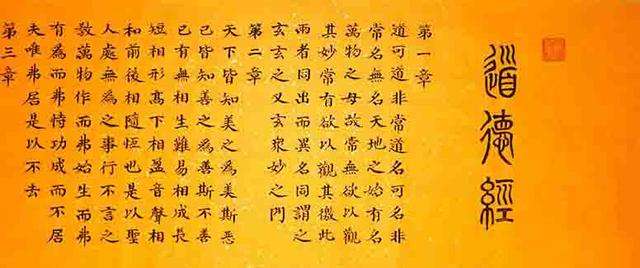 道德經
第一章
道可道非常道名可名非
常名無名天地之始有名
萬物之母故常無欲以觀
其妙常有欲以觀其徼此
兩者同出而異名同謂之
玄玄之又玄衆妙之門
第二章
天下皆知美之為美斯惡
已皆知善之為善斯不善
已有無相生難易相成長
短相形高下相盈音聲相
和前後相隨恆也是以聖
人處無為之事行不言之
教萬物作而弗始生而弗
有為而弗恃功成而不居
夫唯弗居是以不去
第三章